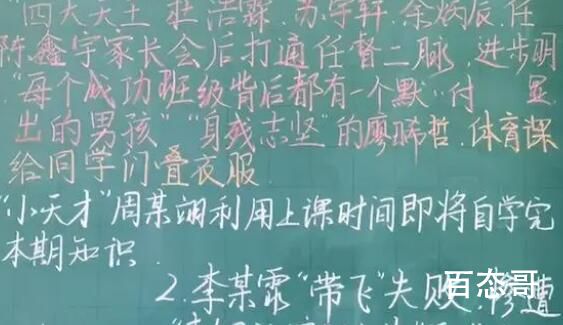 "四大天王"杜浩霖、苏宇轩、余炳辰、任
陈鑫宇家长会后打通任督二脉,进步明
"每个成功班级背后都有一个默付 显
出的男孩""身残志坚"的廖晞哲,体育课
给同学们叠衣服
"小天才"周某翊利用上课时间即将自学完
本期知识.
2.李某霏"带飞"失败,惨遭
百态哥